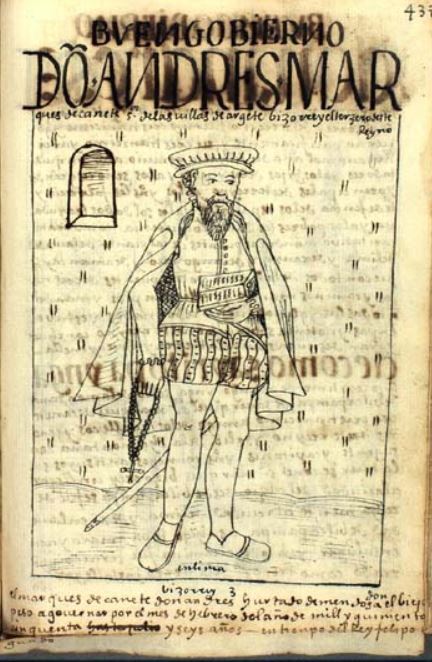 437
BVENGOBIERNO
DÕ ANDRESMAR
ques de cañete s.r de las uillas de argete bizorrey el terzero deste
Reyno
en lima
bizorrey 3
el marques de cañete don andres hurtado de mendosa el biejo don
a gouernar por el mes de hebrero del año de mill y quinientos
cinquenta y seys años — en tienpo del rey felipo